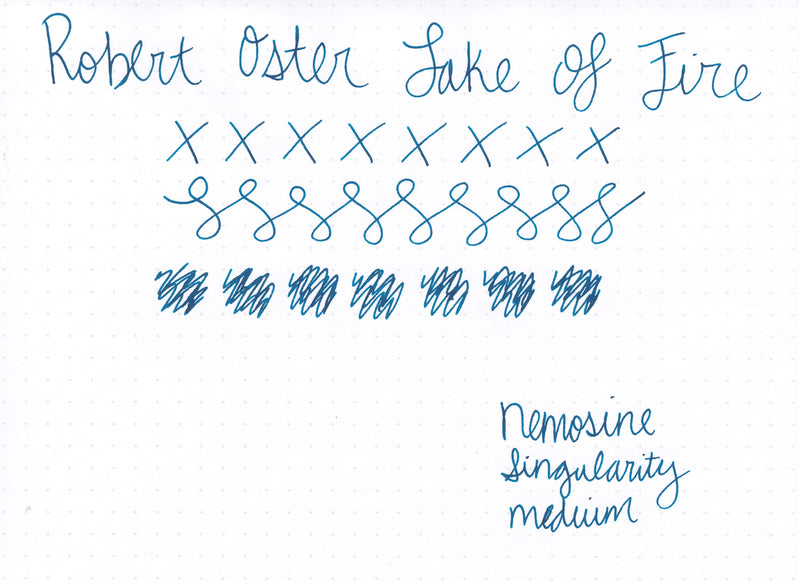 Robert Oster Lake Of Fire
X X X X X X X X
Nemosine
Singularity
medium